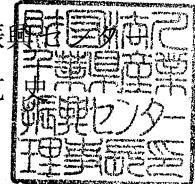 財団法人
千葉県産業
振興センター
理事長印